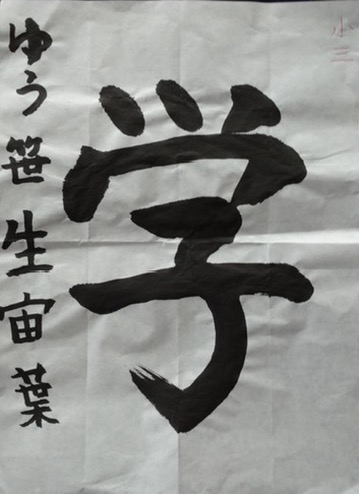 小三
学
ゆう笹生宙葉